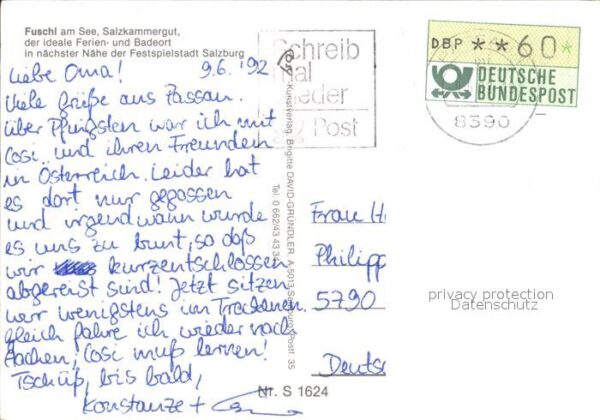 Fuschl am See, Salzkammergut,
der ideale Ferien- und Badeort
in nächster Nähe der Festspielstadt Salzburg
Liebe Oma! 9.6.'92
Viele Grüße aus Passau.
Über Pfingsten war ich mit
Cosi und ihren Freunden
in Österreich. Leider hat
es dort nur gegossen
und irgendwann wurde
es uns zu bunt, so daß
wir kurzentschlossen
abgereist sind! Jetzt sitzen
wir wenigstens im Trockenen.
Gleich fahre ich wieder nach
Aachen, Cosi muß lernen!
Tschüß, bis bald,
Konstanze +
Kunstverlag Brigitte DAVID-GRÜNDLER, A-5013 Salzburg, Postf. 35
Tel. 0 662/43 43 34
Nr. S 1624
Schreib
mal
wieder
Post
DBP **60*
DEUTSCHE
BUNDESPOST
8390
Frau H
Philipp
5790
Deuts
privacy protection
Datenschutz